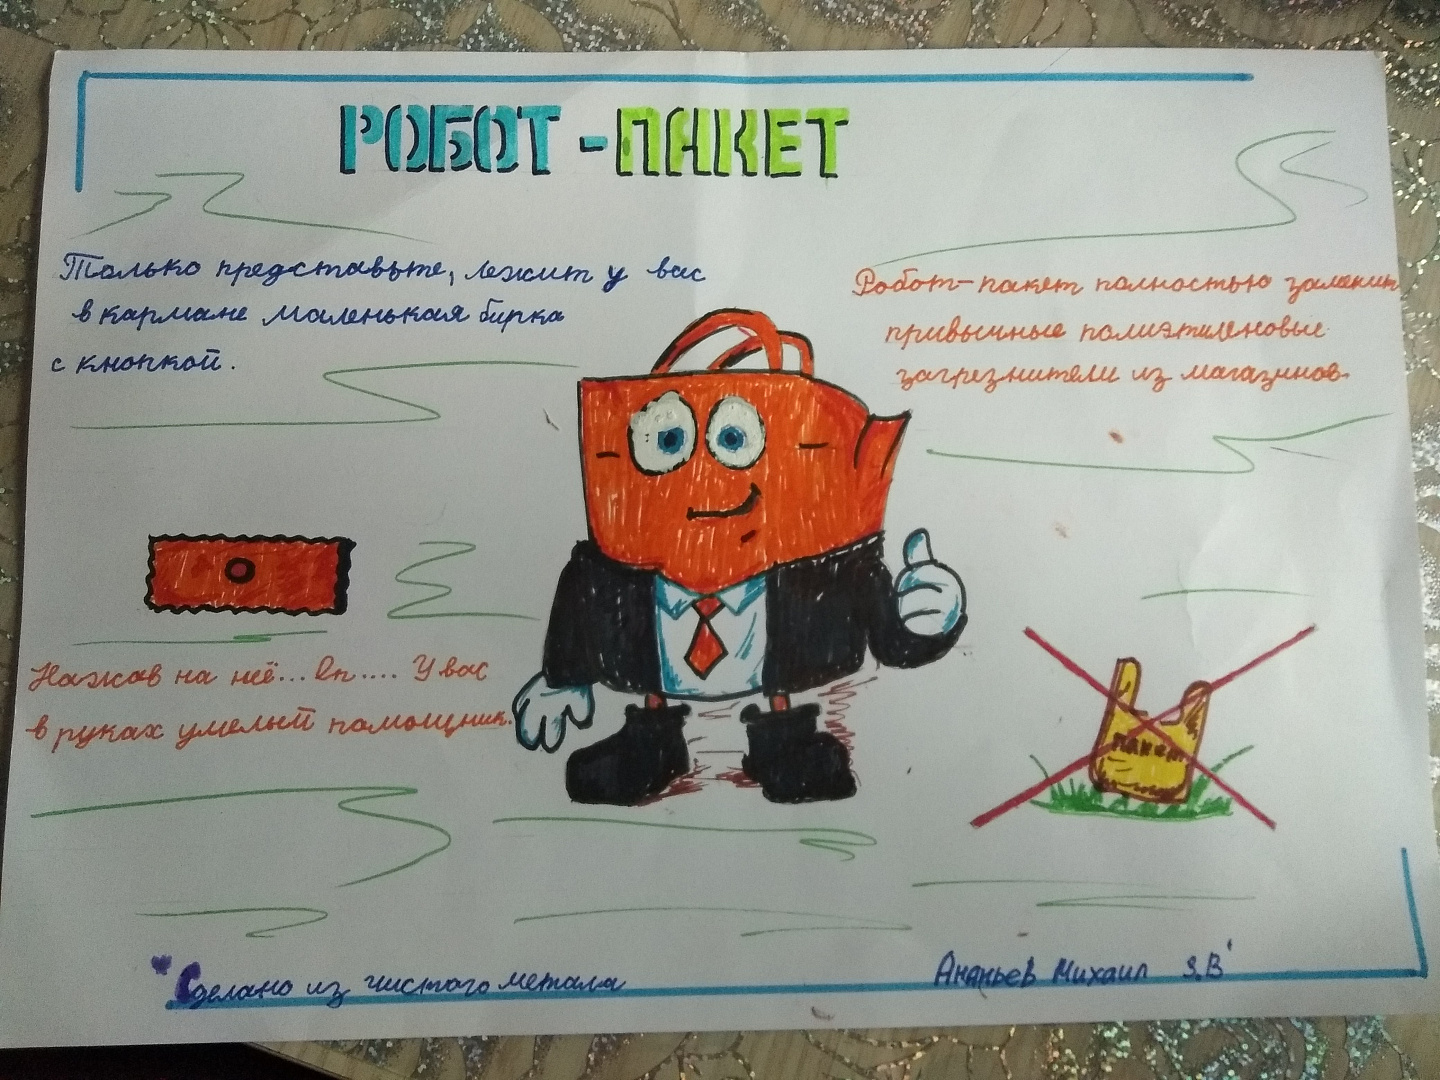 РОБОТ-ПАКЕТ
Только представьте, лежит у вас
в кармане маленькая бирка
с кнопкой.
Робот-пакет полностью заменит
привычные полиэтиленовые
загрезнители из магазинов.
Нажав на неё... Оп.... У вас
в руках умелый помощник.
пакет
"Сделано из чистого метала
Ананьев Михаил 9.В"